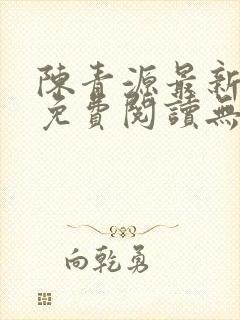 陳青源最新
免費閱讀無
向乾勇